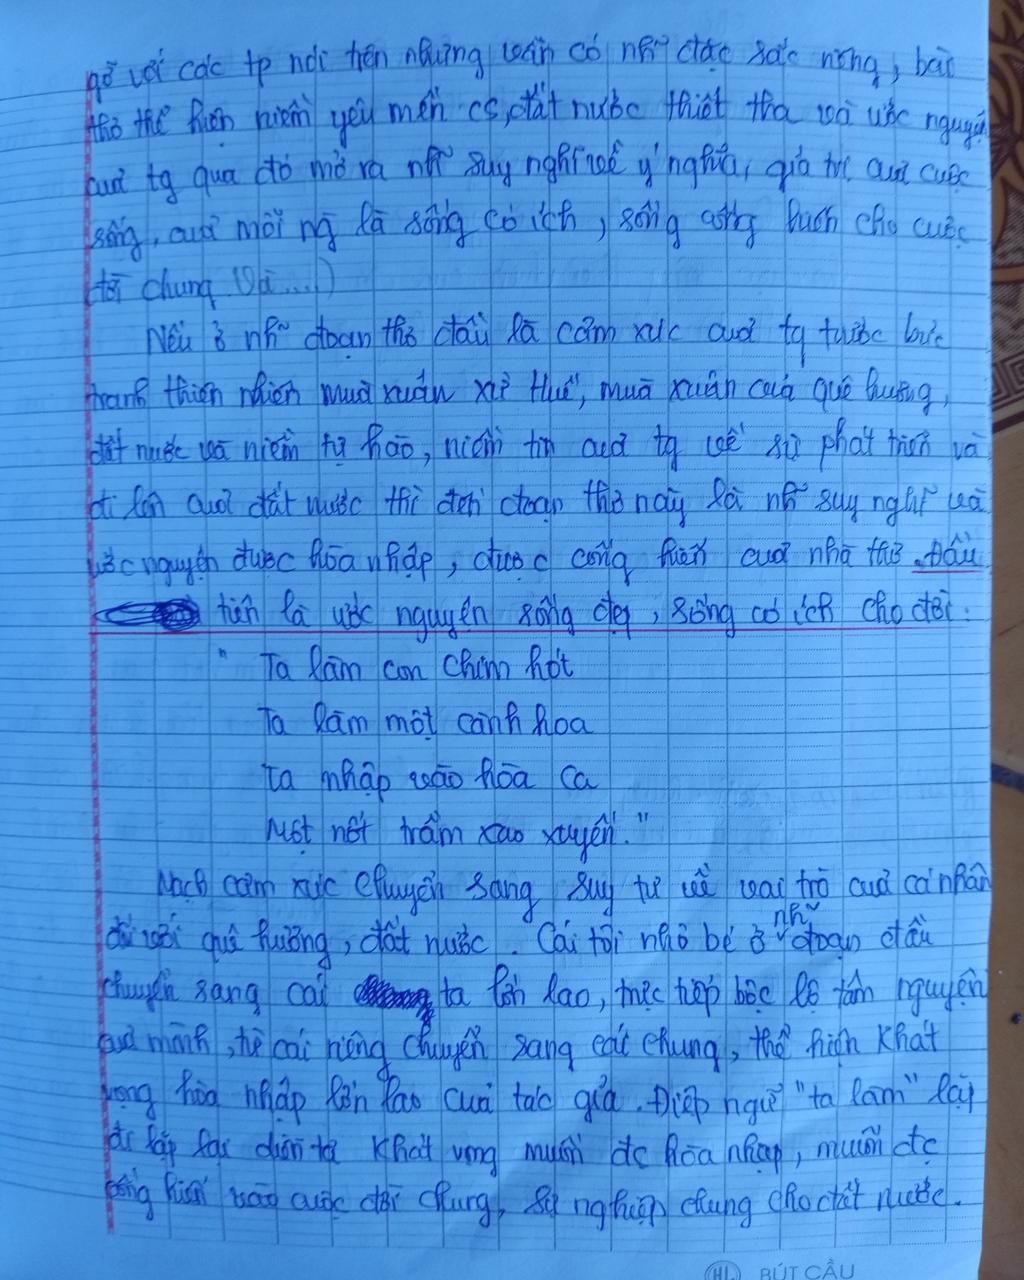 gỡ với các tp nói trên nhưng vẫn có nh~ đặc sắc riêng, bài
thơ thể hiện niềm yêu mến cs, đất nước thiết tha và ước nguyện
của tg qua đó mở ra nh~ suy nghĩ về ý nghĩa, giá trị của cuộc
sống, của mỗi ng là sống có ích, sống cống hiến cho cuộc
đời chung. Và...)
Nếu ở nh~ đoạn thơ đầu là cảm xúc của tg trước bức
tranh thiên nhiên mùa xuân xứ Huế, mùa xuân của quê hương,
đất nước và niềm tự hào, niềm tin của tg về sự phát triển và
đi lên của đất nước thì đến đoạn thơ này là nh~ suy nghĩ và
ước nguyện được hòa nhập, được cống hiến của nhà thơ. Đầu
tiên là ước nguyện sống đẹp, sống có ích cho đời:
" Ta làm con chim hót
Ta làm một cành hoa
Ta nhập vào hòa ca
Một nốt trầm xao xuyến."
Mạch cảm xúc chuyển sang suy tư về vai trò của cá nhân
đối với quê hương, đất nước. Cái tôi nhỏ bé ở nh~ đoạn đầu
chuyển sang cái ta lớn lao, trực tiếp bộc lộ tâm nguyện
của mình, từ cái riêng chuyển sang cái chung, thể hiện khát
vọng hòa nhập lớn lao của tác giả. Điệp ngữ "ta làm" lặp
đi lặp lại diễn tả khát vọng muốn đc hòa nhập, muốn đc
cống hiến vào cuộc đời chung, sự nghiệp chung cho đất nước.
HL BÚT CẦU